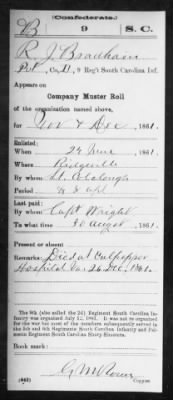 (Confederate.)
B 9 S.C.
R. J. Bradham
Pvt, Co. D, 9 Reg't South Carolina Inf.
Appears on
Company Muster Roll
of the organization named above,
for Nov & Dec, 1861.
Enlisted:
When 24 June, 1861.
Where Ridgeville
By whom Lt. Colclough
Period
Last paid:
By whom Capt Wright
To what time 30 August, 1861.
Present or absent
Remarks: Died at Culpepper
Hospital Va. 26 Dec. 1861.
The 9th (also called the 2d) Regiment South Carolina Infantry
was organized July 12, 1861. It was not re organized
for the war but most of the members subsequently served in
the 5th and 6th Regiments South Carolina Infantry and Palmetto
Regiment South Carolina Sharp Shooters.
Book mark:
(642)
Copyist.